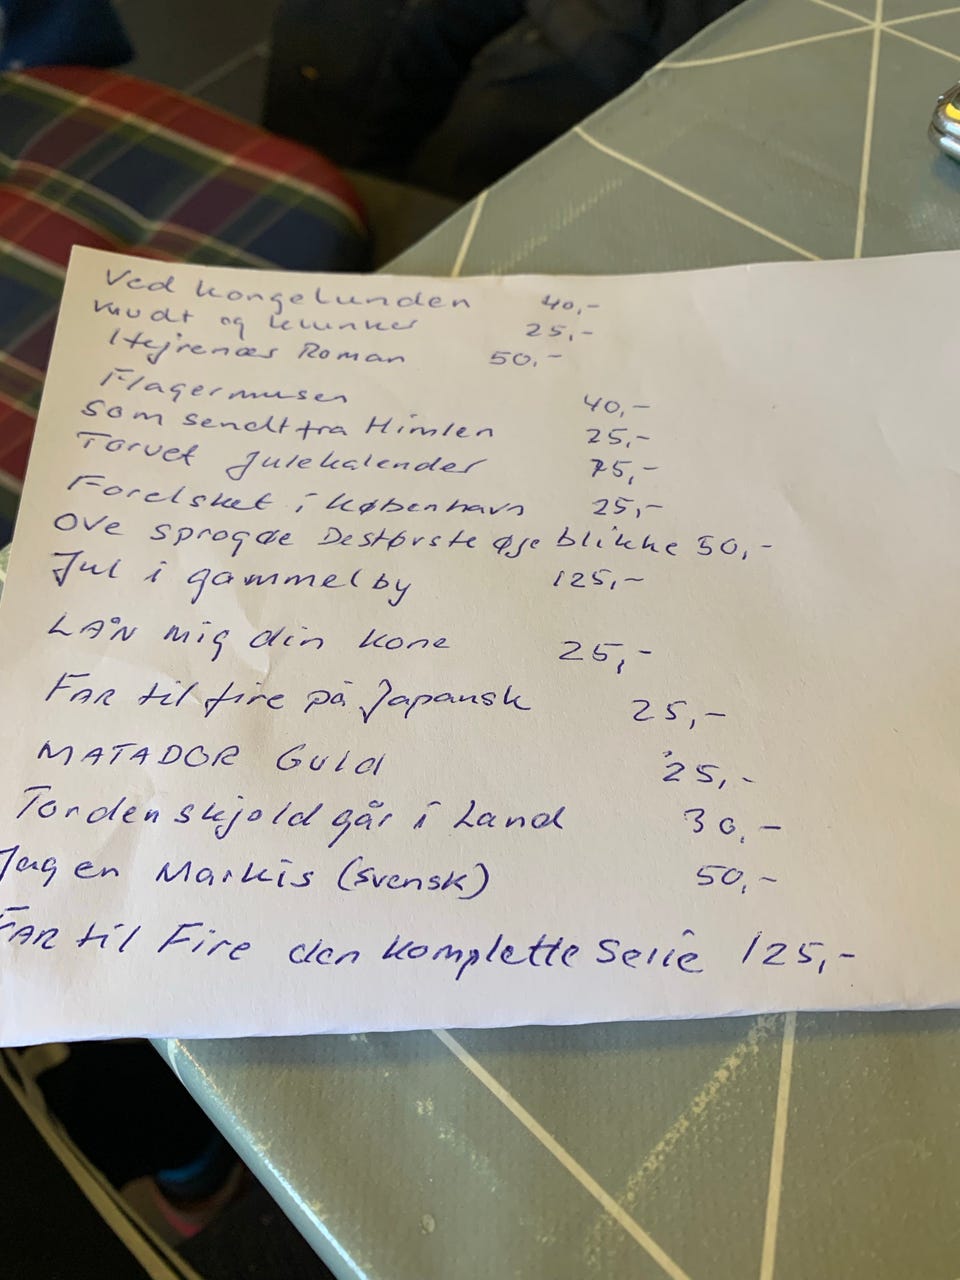 Ved Kongelunden 40,-
Mudt og Klunker 25,-
Hejrenæs Roman 50,-
Flagermusen 40,-
Som sendt fra Himlen 25,-
Torvet Julekalender 75,-
Forelsket i København 25,-
Ove sprogøe De største øjeblikke 50,-
Jul i gammelby 125,-
LÅN mig din kone 25,-
FAR til fire på Japansk 25,-
MATADOR Guld 25,-
Tordenskjold går i Land 30,-
Jag en Markis (svensk) 50,-
FAR til Fire den komplette Serie 125,-